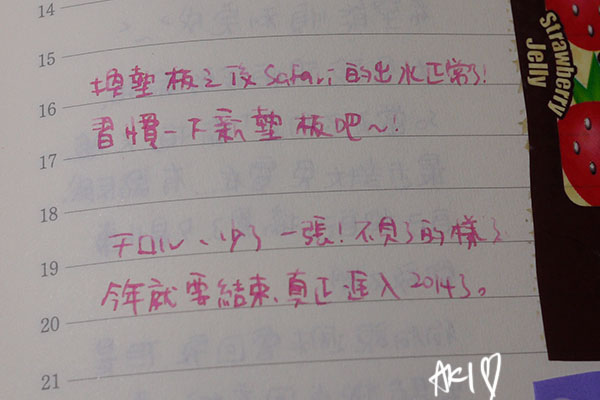 14
15
換墊板之後Safari的出水正常了!
16
習慣一下新墊板吧~!
17
18
チロル、少了一張!不見了的樣子
19
今年就要結束、真正進入2014了。
20
21
AKI♡
strawberry
Jelly